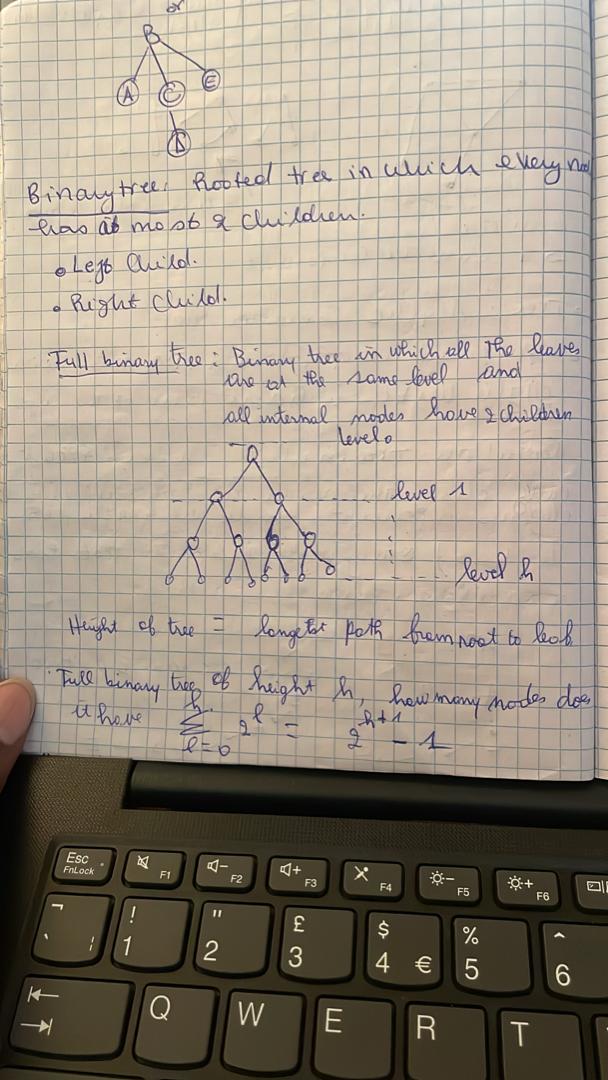 or
B
A C E
D
Binary tree: Rooted tree in which every no
has at most 2 children.
• Left Child.
• Right Child.
Full binary tree: Binary tree in which all The leaves
are at the same level and
all internal nodes have 2 children
level 0
level 1
level h
Height of tree = longest path from root to leaf
Full binary tree of height h, how many nodes does
it have h ∑ l=0 2^l = 2^h+1 - 1
Esc FnLock F1 F2 F3 F4 F5 F6
¬ ` ¦ ! 1 " 2 £ 3 $ 4 € % 5 ^ 6
Q W E R T